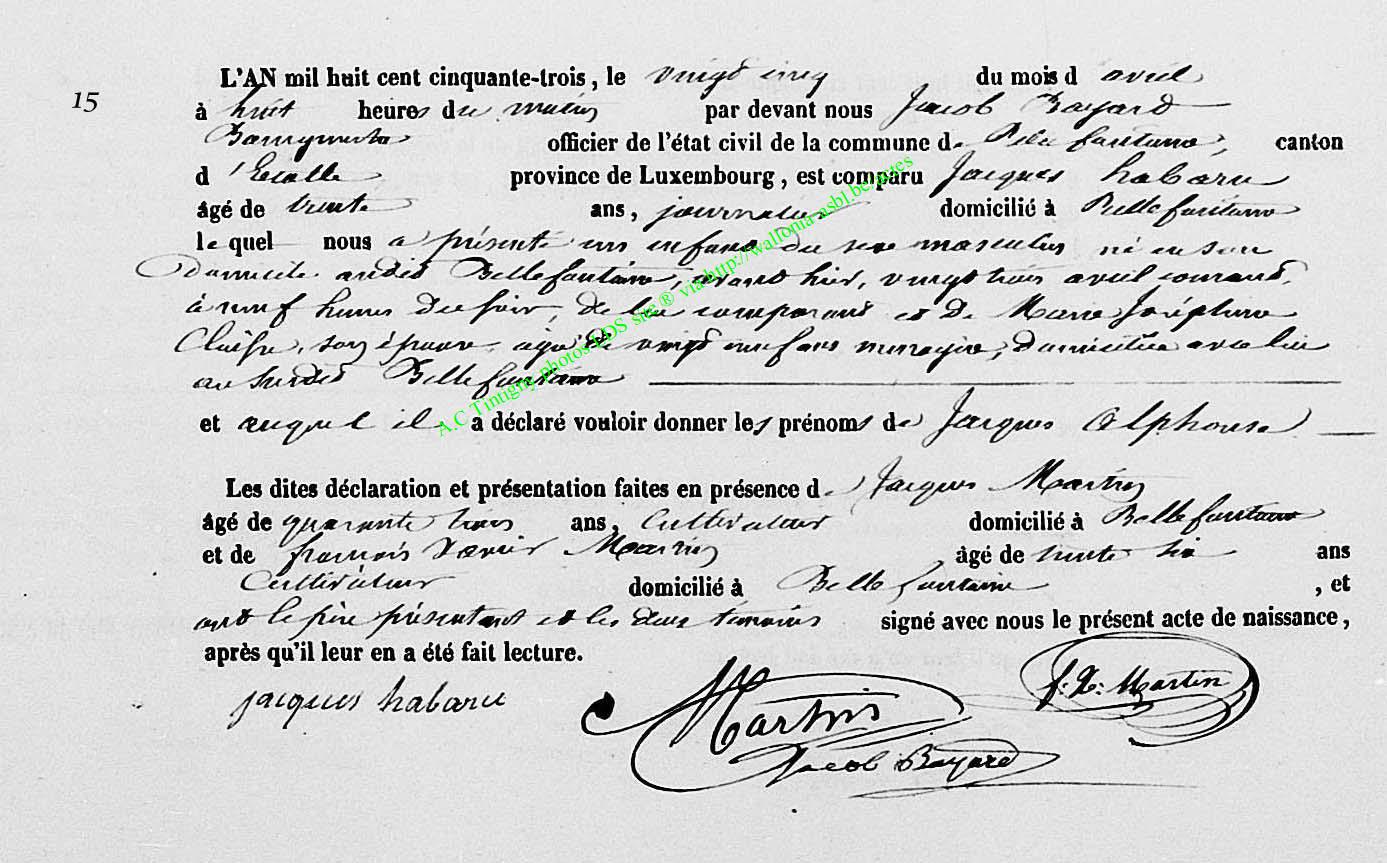 L'AN mil huit cent cinquante-trois, le vingt cinq du mois d avril
15
à huit heures du matin par devant nous Jacob Bayard
Bourgmestre officier de l'état civil de la commune de Bellefontaine, canton
d'Etalle province de Luxembourg, est comparu Jacques habaru
âgé de trente ans, journalier domicilié à Bellefontaine
lequel nous a présenté un enfant du sexe masculin né en son
domicile audit Bellefontaine, avant hier, vingt trois avril courant,
à neuf heures du soir, de lui comparant et de Marie Joséphine
son épouse, agée de vingt neuf ans menagère, domiciliée avec lui
au susdit Bellefontaine
et auquel il a déclaré vouloir donner les prénoms de Jacques Alphonse
Les dites déclaration et présentation faites en présence de Jacques Martin
âgé de quarante trois ans, Cultivateur domicilié à Bellefontaine
et de françois Xavier Martin âgé de trente six ans
Cultivateur domicilié à Bellefontaine, et
ont le père présentant et les deux témoins signé avec nous le présent acte de naissance,
après qu'il leur en a été fait lecture.
jacques habaru Martin f. X. Martin
Jacob Bayard
A.C Tintigny photos LDS site ® via http://wallonia-asbl.be/actes